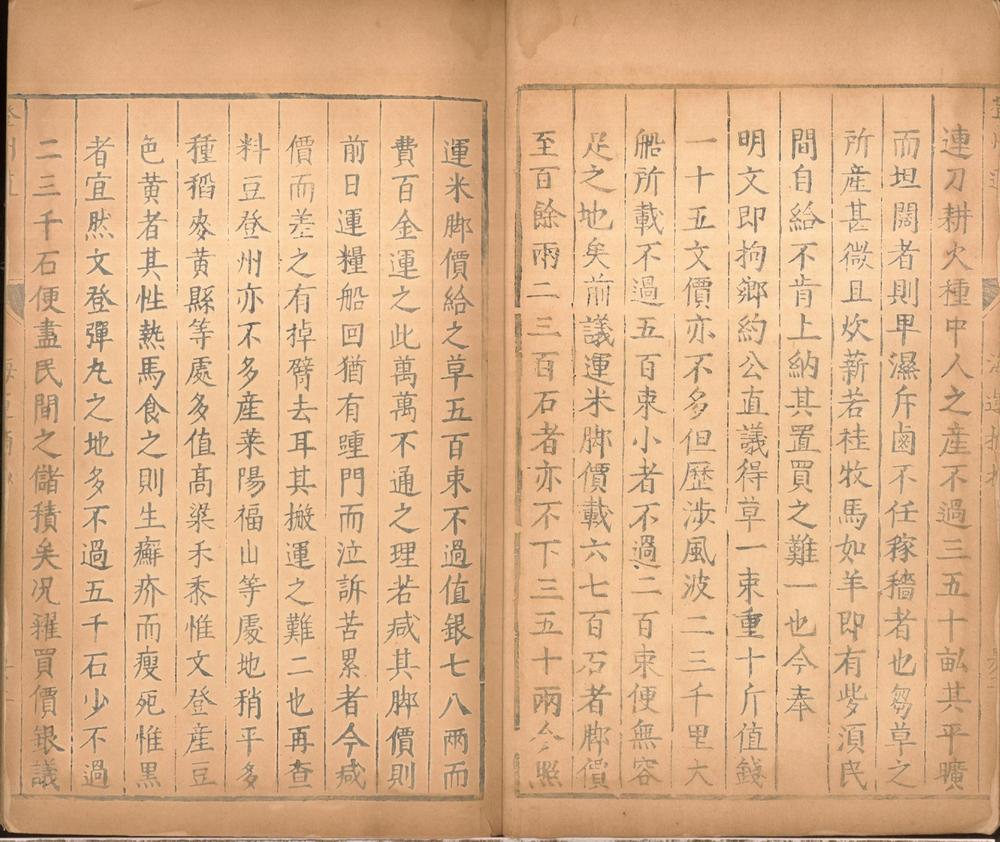 連刀耕火種中人之產不過三五十畝其平曠
而坦闊者則卑濕斥鹵不任稼穡者也芻草之
所產甚微且炊薪若桂牧馬如羊即有些須民
間自給不肯上納其置買之難一也今奉
明文即拘鄉約公直議得草一束重十斤值錢
一十五文價亦不多但歷涉風波二三千里大
船所載不過五百束小者不過二百束便無容
足之地矣前議運米脚價載六七百石者脚價
至百餘兩二三百石者亦不下三五十兩今照
運米脚價給之草五百束不過值銀七八兩而
費百金運之此萬萬不通之理若减其脚價則
前日運糧船回猶有踵門而泣訴苦累者今减
價而差之有掉臂去耳其搬運之難二也再查
料豆登州亦不多產萊陽福山等處地稍平多
種稻麥黃縣等處多值高粱禾黍惟文登產豆
色黃者其性熱馬食之則生癬疥而瘦死惟黑
者宜然文登彈丸之地多不過五千石少不過
二三千石便盡民間之儲積矣况糴買價銀議